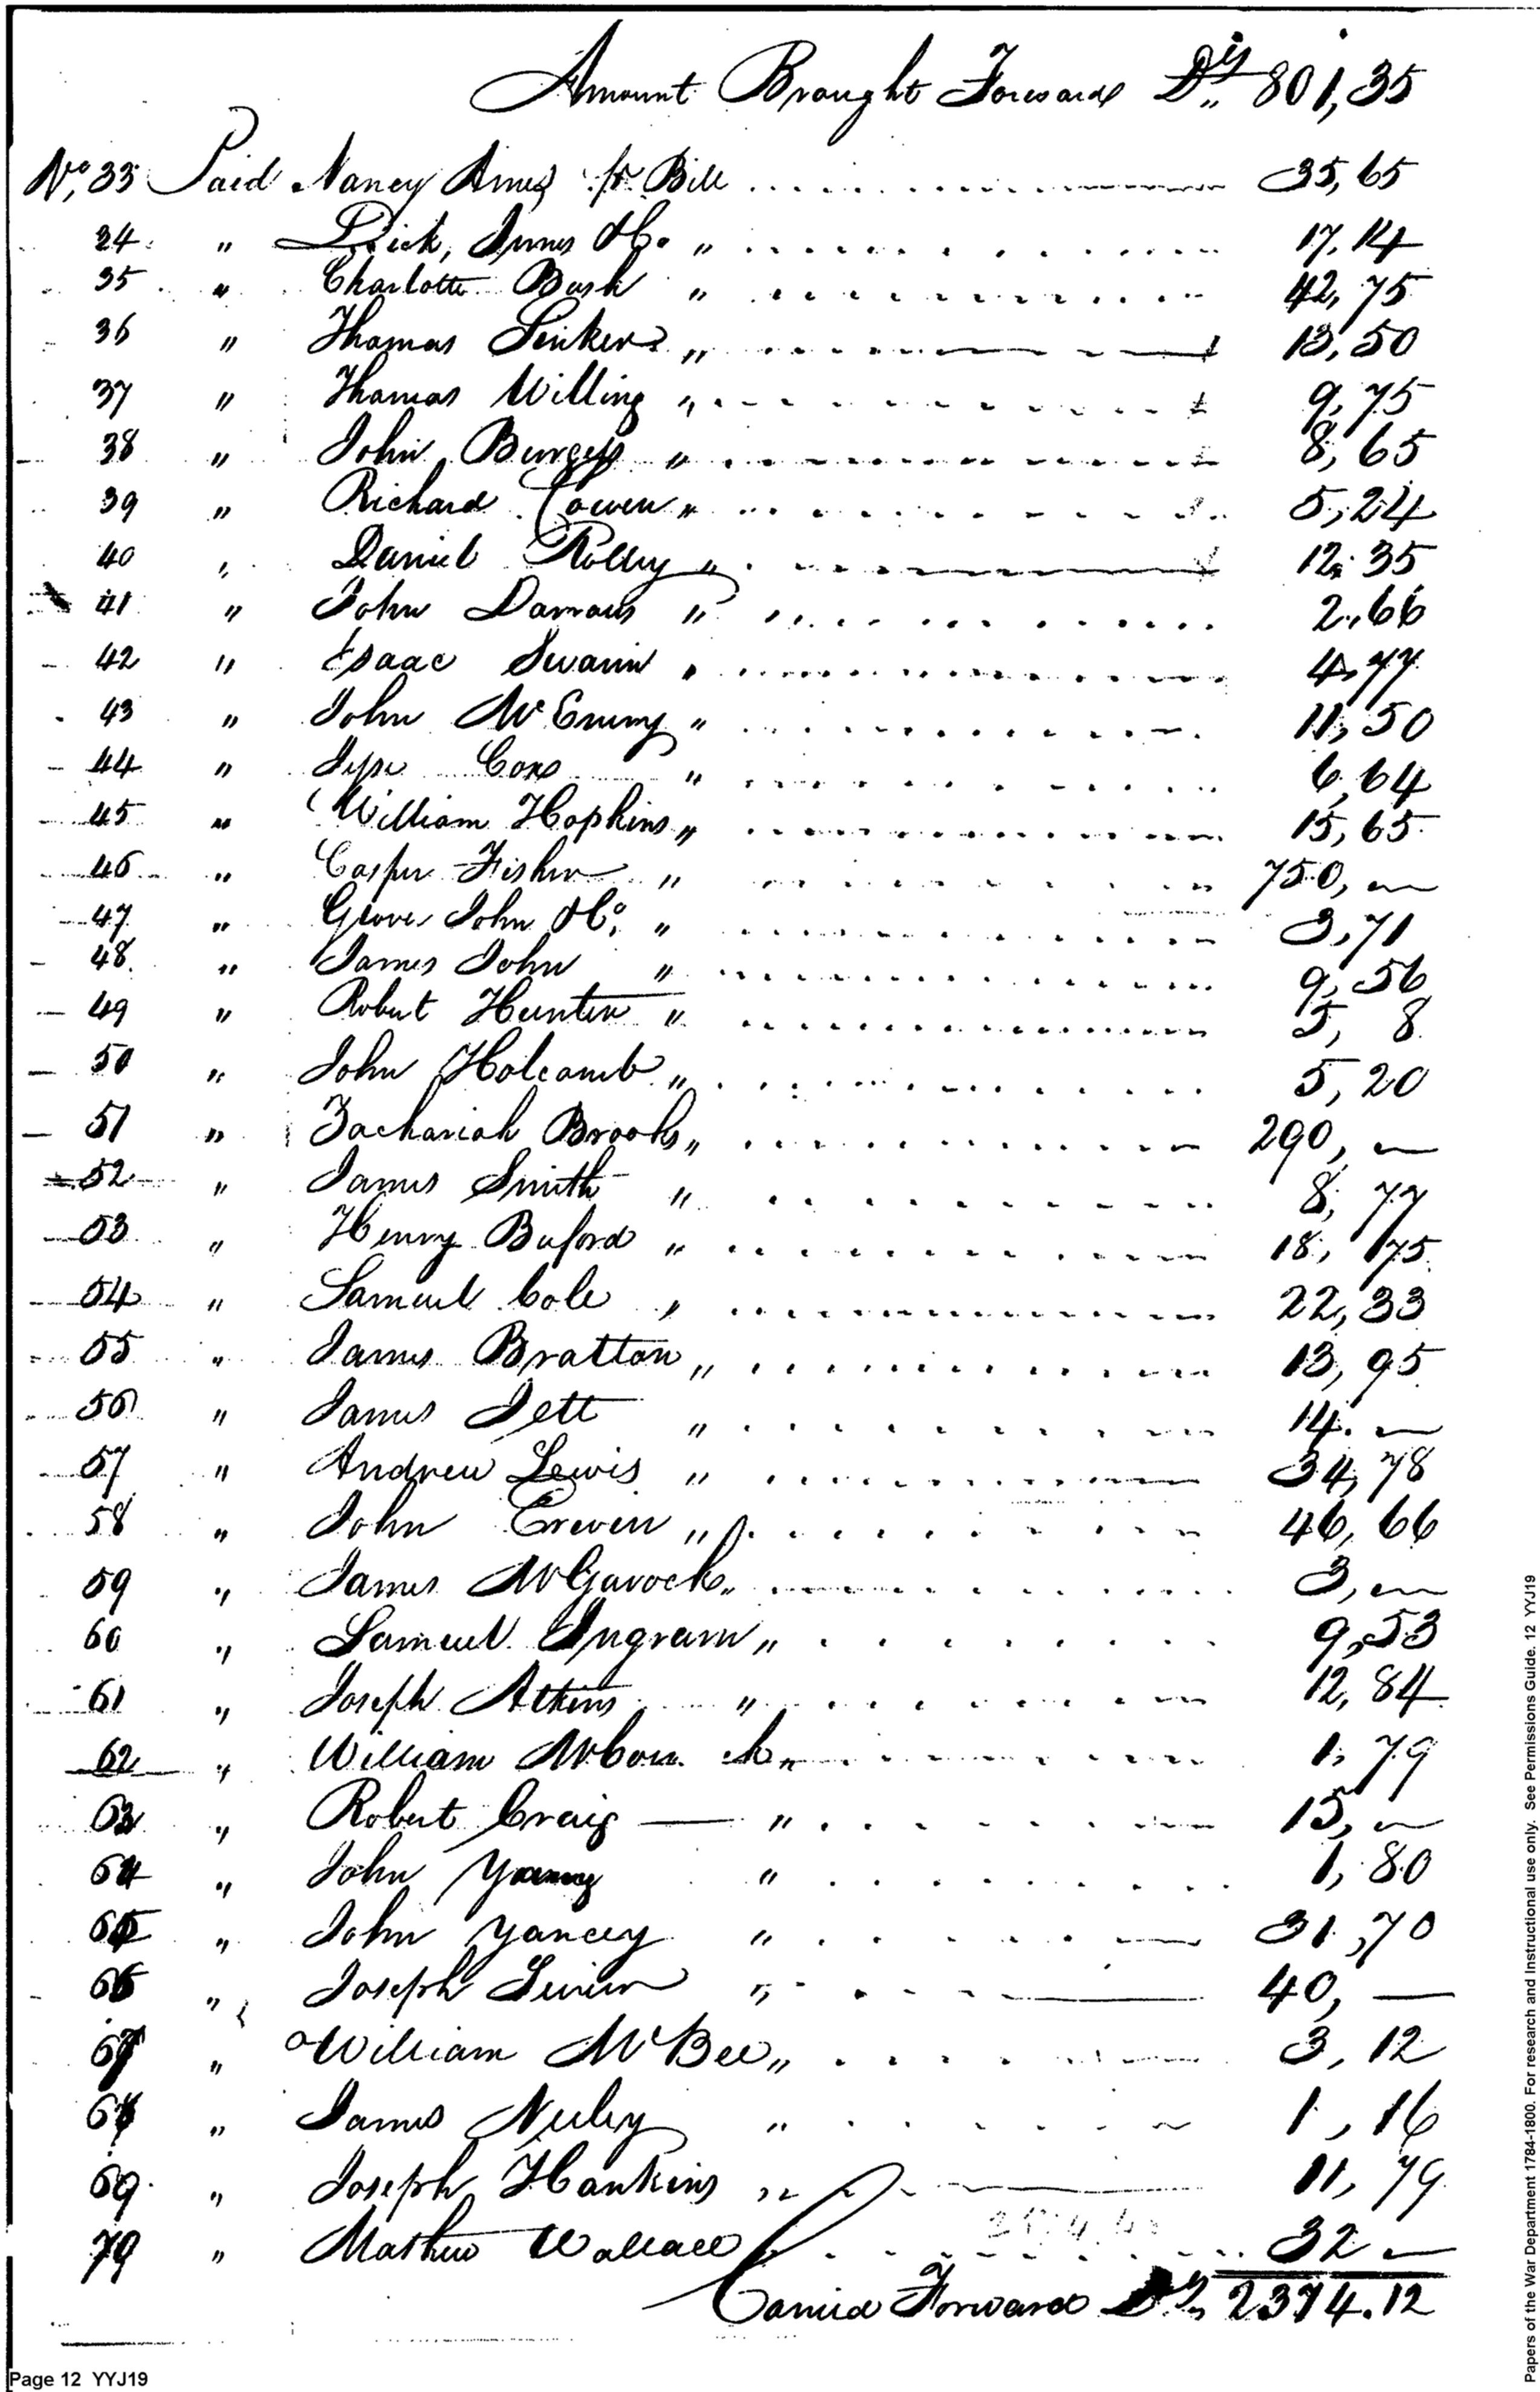 Amount Brought Forward Drs 801,35
No, 33 Paid Nancy Ames pr. Bill 35,65
34 " Dick, James & Co. " 17,14
35 " Charlotte Bush " 42,75
36 " Thomas " 13,50
37 " Thomas Willing " 9,75
38 " John Burgess " 8,65
39 " Richard Cowen " 5,24
40 " Daniel " 12,35
41 " John " 2,66
42 " Isaac Swann " 4,77
43 " John " 11,50
44 " Jesse Cox " 6,64
45 " William Hopkins " 15,65
46 " Casper Fisher " 750, —
47 " John & Co. " 3,71
48 " James John " 9,56
49 " Robert Hunter " 5, 8
50 " John Holcomb " 5,20
51 " Zachariah Brooks " 290, —
52 " James Smith " 8, 77
53 " Henry Buford " 18, 75
54 " Samuel Cole " 22,33
55 " James Bratton " 13,95
56 " James Jett " 14. —
57 " Andrew Lewis " 34,78
58 " John " 46,66
59 " James McGavock " 3, —
60 " Samuel Ingram " 9,53
61 " Joseph Atkins " 12,84
62 " William " 1,79
63 " Robert Craig — " 15, —
64 " John Young " 1,80
65 " John Yancey " 31,70
66 " Joseph " 40, —
67 " William McBee " 3,12
68 " James Neeley " 1,16
69 " Joseph Hankins " 11,79
70 " Mathew Wallace 32 —
Carried Forward Drs 2374.12
Page 12 YYJ19
Papers of the War Department 1784-1800. For research and Instructional use only. See Permissions Guide. 12 YYJ19